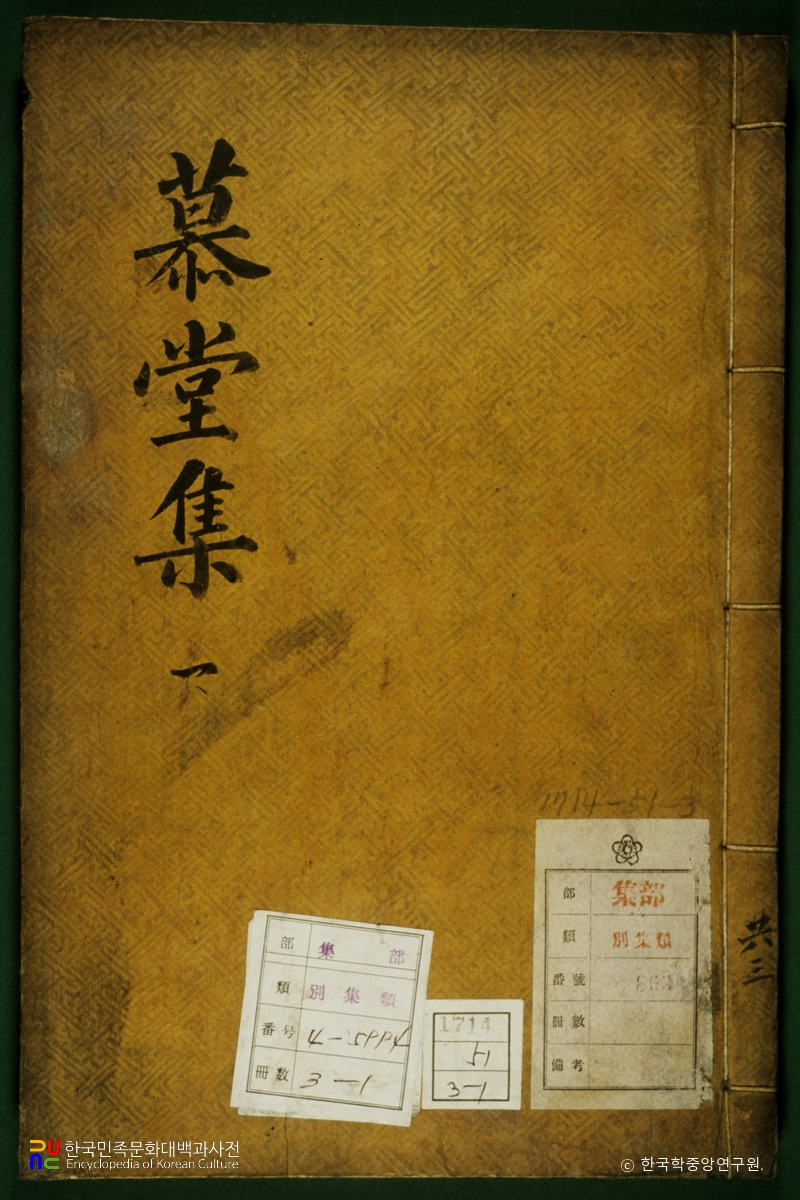 慕堂集 下
共三
1714-51-3
部 集部
類 別集類
番號
冊數
備考
部 集 部
類 別 集 類
番号 4-5994
冊数 3-1
1714
51
3-1
한국민족문화대백과사전
Encyclopedia of Korean Culture
© 한국학중앙연구원.